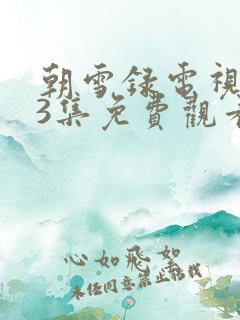 朝雪錄電視
3集免費觀看
心如飛絮
未經同意禁止轉載